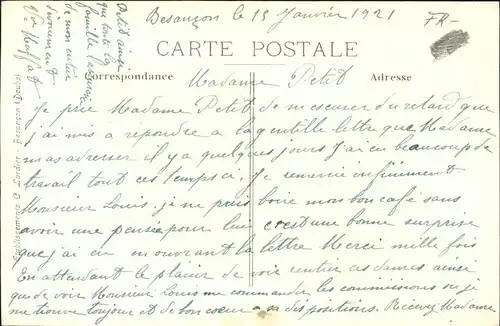 Besançon le 15 Janvier 1921
FR-
CARTE POSTALE
Correspondance
Adresse
Madame Petit
Je prie Madame Petit de m escuser du retard que
j'ai mis a repondre a la gentille lettre que Madame
m as adresser il y a quelques jours J'ai eu beaucoup de
travail tout ces temps ci. Je remercie infiniment
Monsieur Louis, je ne puis boire mon bon café sans
avoir une pensée pour lui c'etait une bonne surprise
que j'ai eu en ouvrant la lettre Merci mille fois
En attendant le plaisir de voir ces dames ainsi
que de voir Monsieur Louis me commander les commissions ou je
me trouve toujour et de bon coeur a sa dispositions. Recevez Madame
Petit ainsi
que toute la
famille l'assurance
de mon entier
devouement
Etablissements C. Lardier - Besançon (Doubs)